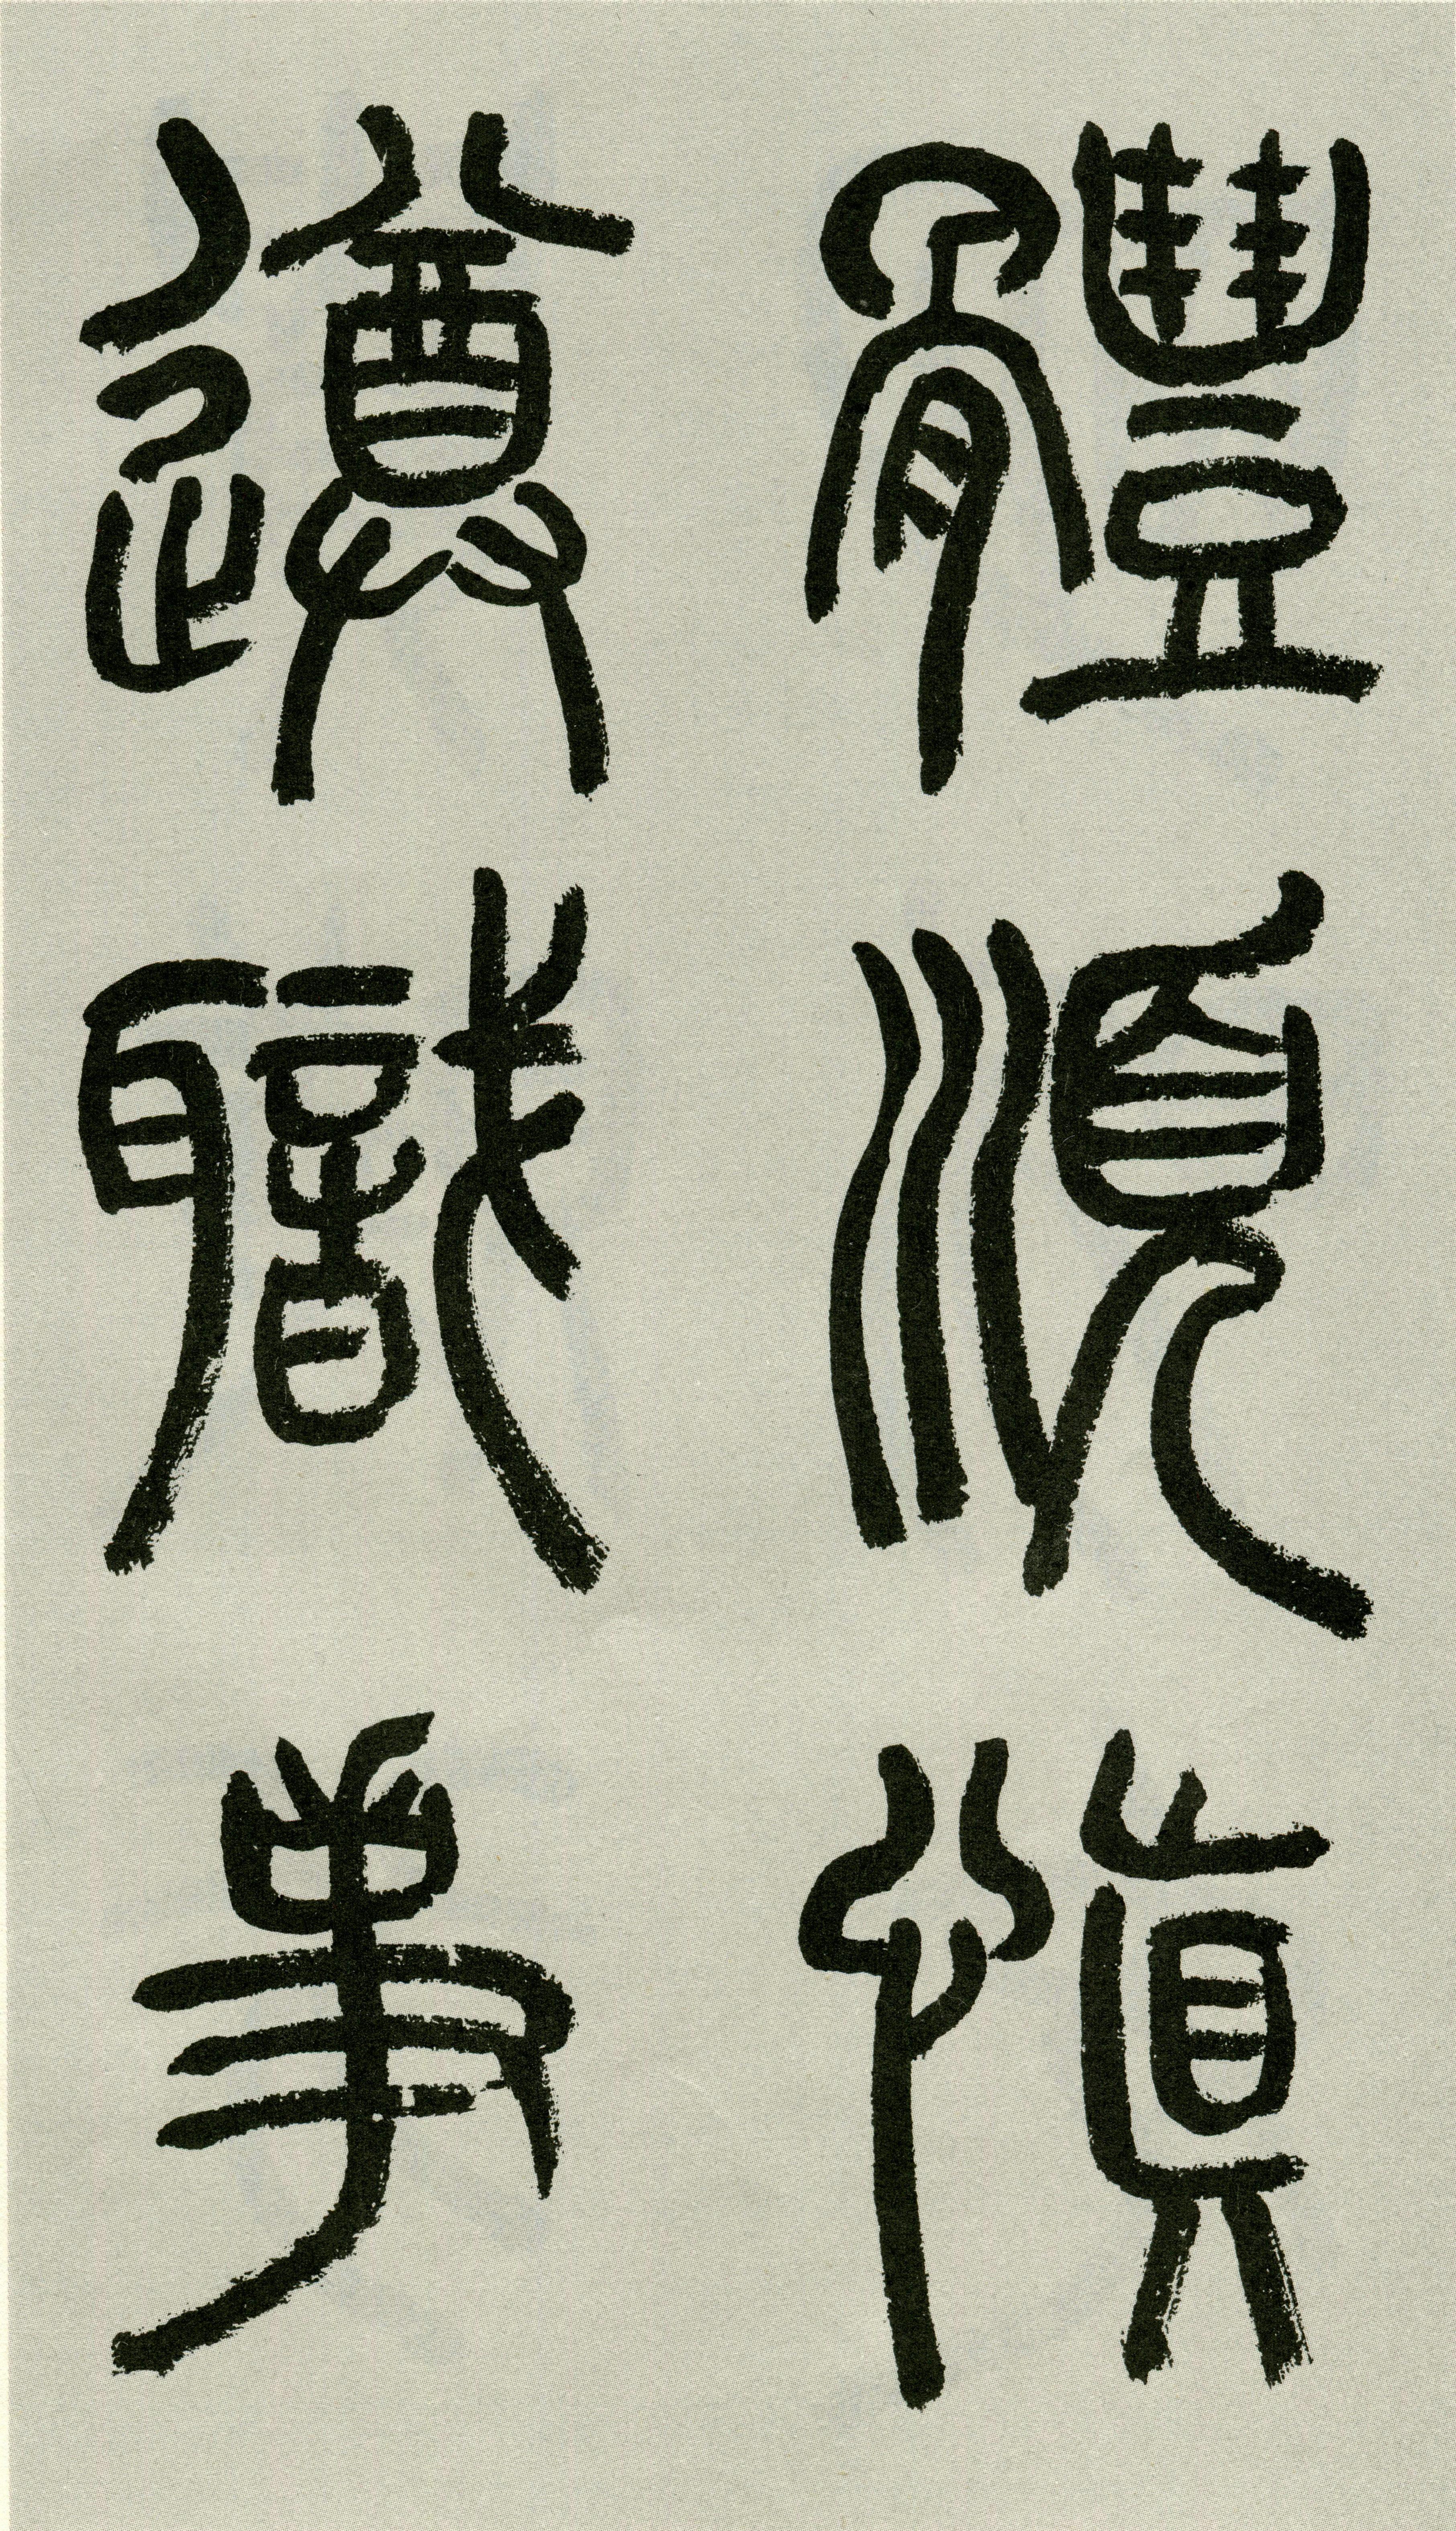 體順慎
遵職事